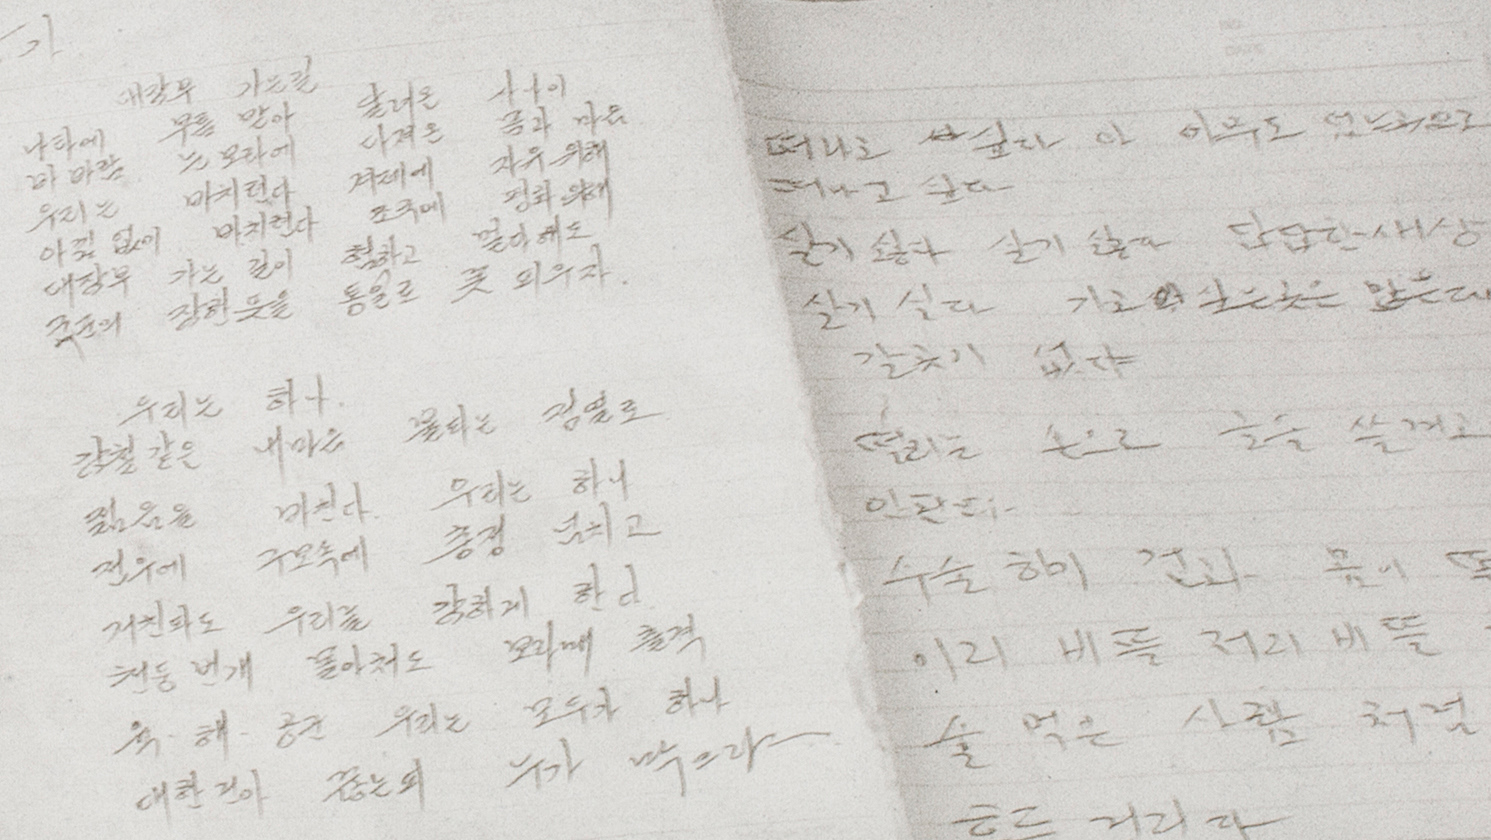 가
대장부 가는길
나라에 부름 받아 달려온 사나이
비 바람 눈 보라에 다져온 몸과 마음
우리는 마치련다 겨레에 자유 위해
아낌 없이 마치련다 조국에 평화 위해
대장부 가는 길이 험하고 멀다해도
장한 뜻을 통일로 꽃 피우자.
우리는 하나.
강철 같은 내마음 불타는 정열로
젊음을 바친다. 우리는 하나
전우에 충정 넘치고
거친파도 우리를 강하게 한다.
천둥 번개 몰아쳐도 보라매 출격
육- 해- 공군 우리는 모두가 하나
대한건아 누가 막으랴
떠나고 싶다 아 아무도
떠나고 싶다
살기 싫다 살기 싫다 답답한 세상
살기 싫다 가고 싶은곳은 많은데
갈곳이 없다
떨리는 손으로 글을 쓸려고
안된다.
수술 하이 몸이
이리 비뜰 저리 비뜰
술 먹은 사람 처럼
흔드 거리다